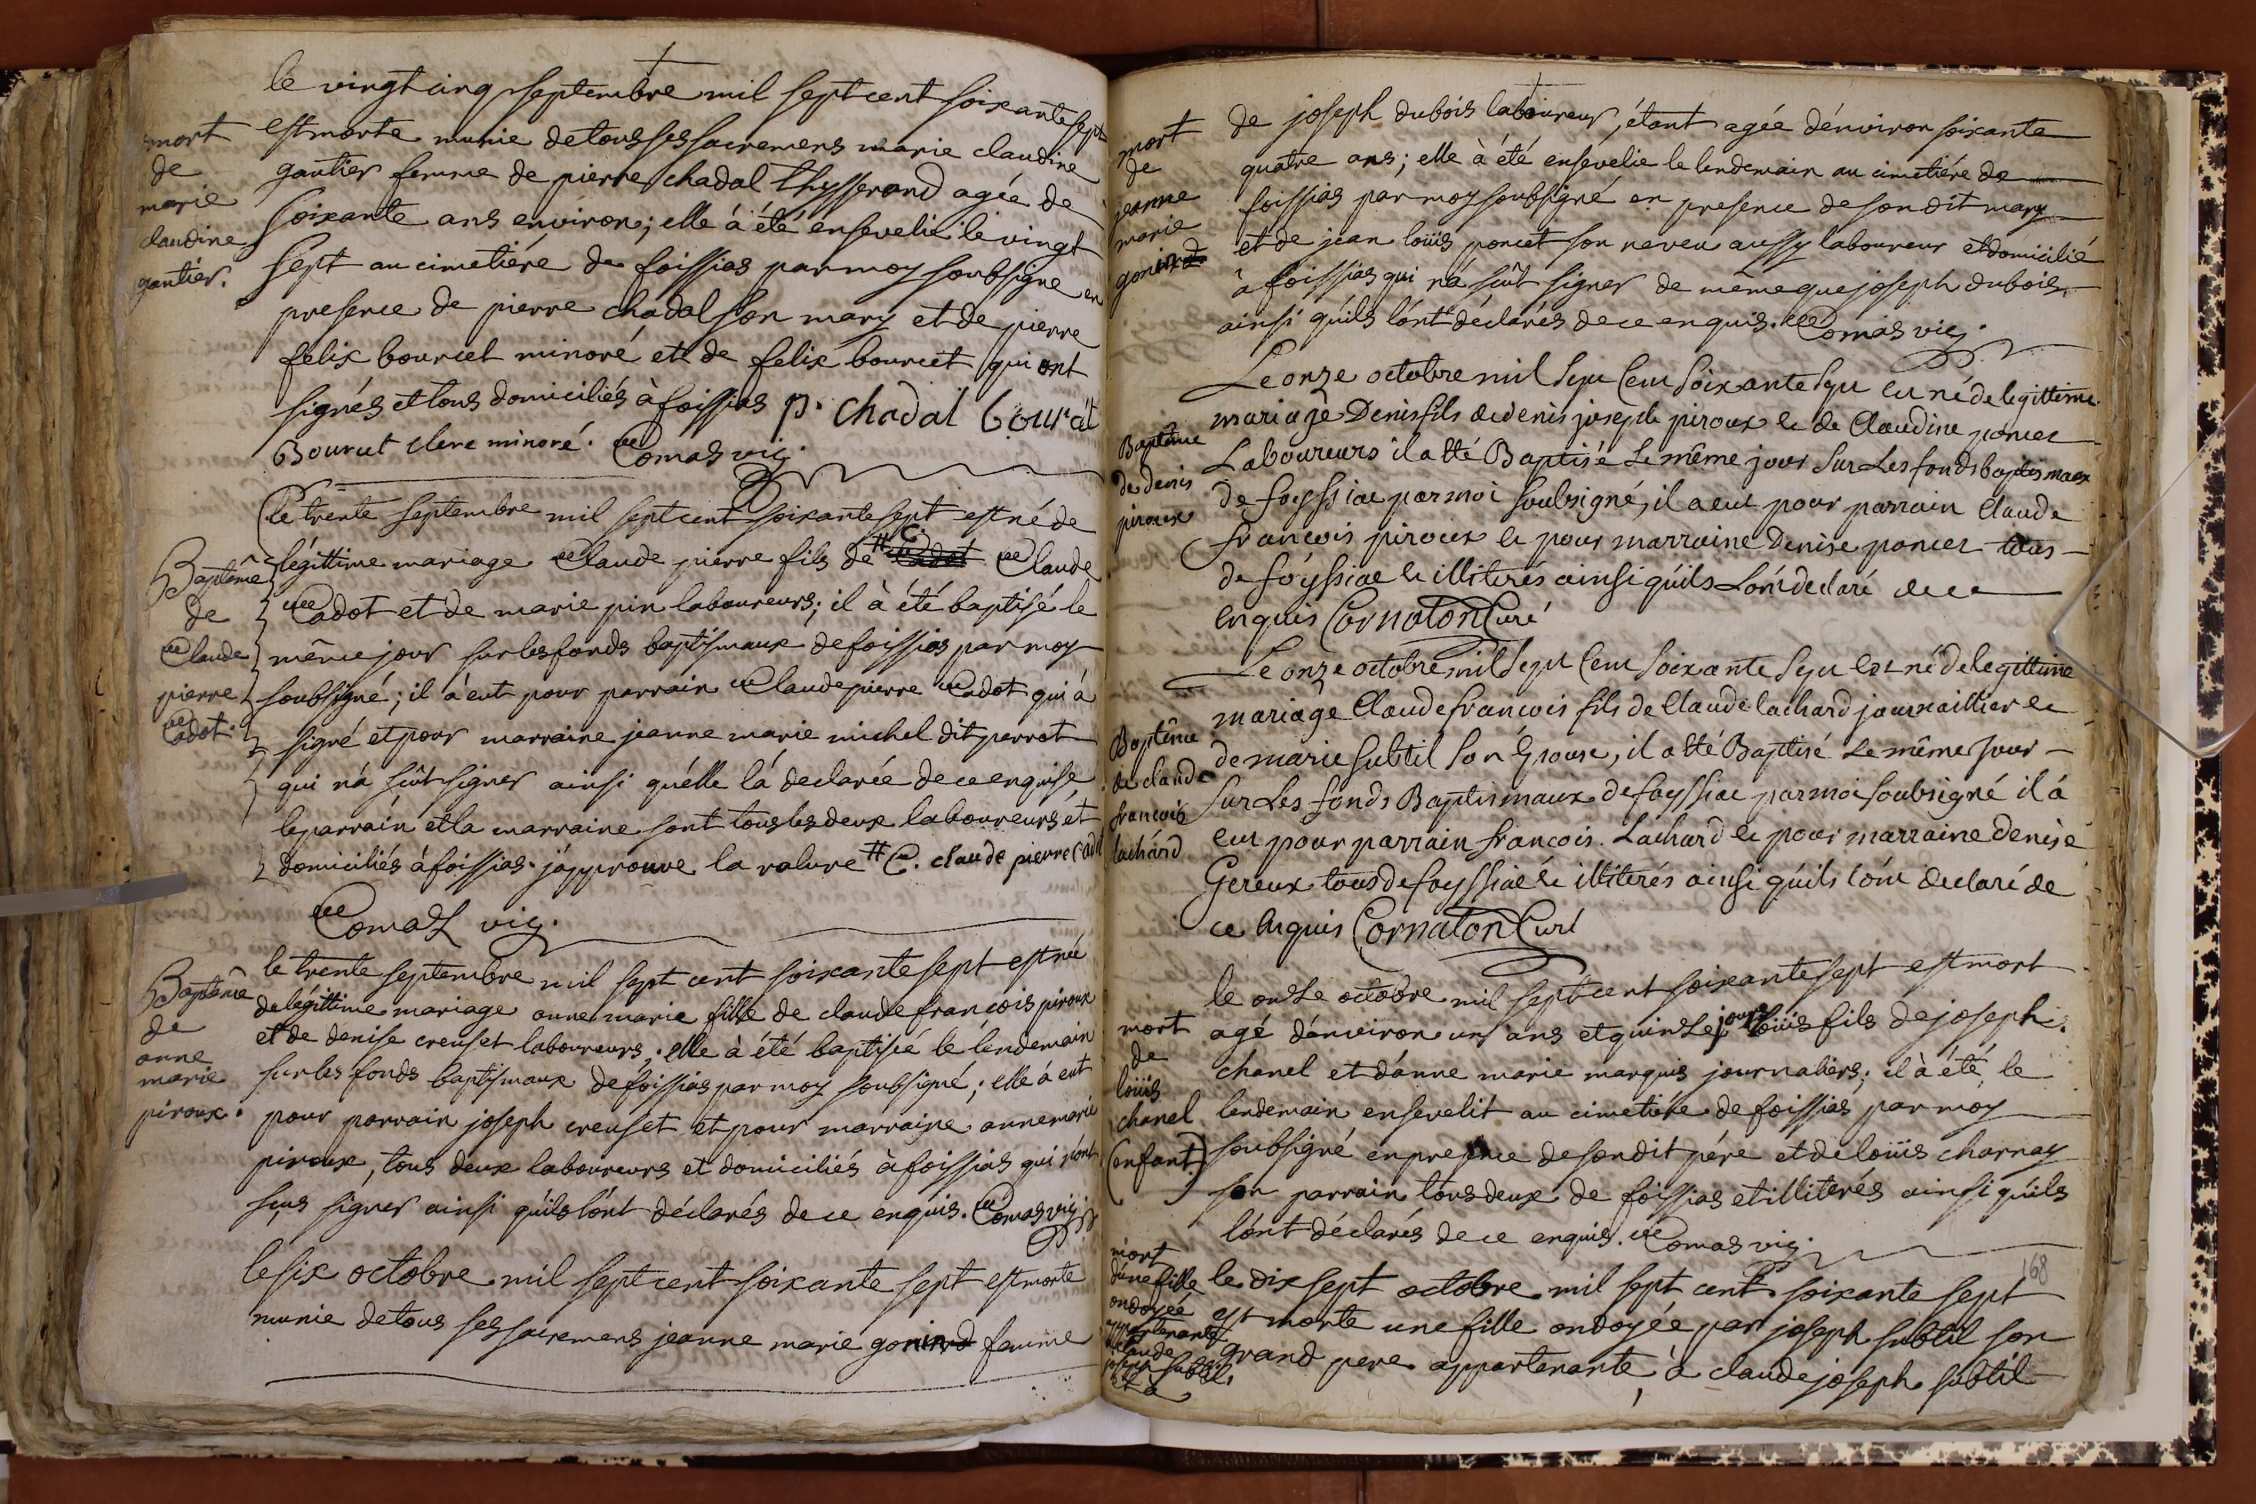 le vingt cinq septembre mil sept cent soixante sept
mort
de
marie
claudine
gautier.
est morte munie de tous ses sacremens marie claudine
gautier femme de pierre chadal thysserand agée de
soixante ans environ; elle à été ensevelie le vingt
sept au cimetiére de foissias par moy soubsigné en
presence de pierre chadal son mary et de pierre
felix bourcet minoré et de felix bourcet qui ont
signés et tous domiciliés à foissias p. chadal bourcet
Bourcet clerc minoré. Comas vic.
Le trente septembre mil sept cent soixante sept est né de
Baptême
de
Claude
pierre
Cadot.
légittime mariage Claude pierre fils de # C Cadot Claude
Cadot et de marie pin laboureurs; il à été baptisé le
même jour sur les fonds baptismaux de foissias par moy
soubsigné; il à eut pour parrain Claude pierre Cadot qui à
signé et pour marraine jeanne marie michel dit perrot
qui n'á sûit signer ainsi qu'élle l'á declarée de ce enquise,
le parrain et la marraine sont tous les deux laboureurs et
domiciliés à foissias. j'approuve la rature # C. claude pierre Cadot
Comas vic.
le trente septembre mil sept cent soixante sept est née
Baptême
de
anne
marie
piroux.
de légittime mariage anne marie fille de claude françois piroux
et de denise creuset laboureurs; elle à été baptisée le lendemain
sur les fonds baptismaux de foissias par moy soubsigné; elle à eut
pour parrain joseph creuset et pour marraine anne marie
piroux, tous deux laboureurs et domiciliés à foissias qui n'ónt
sçus signer ainsi qu'ils l'ónt déclarés de ce enquis. Comas vic.
le six octobre mil sept cent soixante sept est morte
munie de tous ses sacremens jeanne marie gonind femme
mort
de
jeanne
marie
gonind
de joseph dubois laboureur, étant agée d'énviron soixante
quatre ans; elle à été ensevelie le lendemain au cimetiére de
foissias par moy soubsigné en presence de son dit mary
et de jean loüis poncet son neveu aussy laboureur et domicilié
à foissias qui n'á sûit signer de même que joseph dubois
ainsi qu'ils l'ónt déclarés de ce enquis. Comas vic.
Le onze octobre mil sept Cent soixante sept est né de legittime
Baptême
de denis
piroux
mariage Denis fils de denis joseph piroux et de Claudine poncet
Laboureurs il a été Baptisé Le même jour sur Les fonds baptismaux
de foyssiac par moi soubsigné, il a eut pour parrain Claude
francois piroux et pour marraine Denise poncet tous
de foyssiac et illiterés ainsi qu'ils L'ont declaré de ce
enquis Cornaton Curé
Le onze octobre mil sept Cent soixante sept est né de legittime
Baptême
de claude
francois
lachard
mariage Claude francois fils de Claude lachard journaillier et
de marie subtil son Epouse, il a été Baptisé Le même jour
sur Les fonds Baptismaux de foyssiac par moi soubsigné il á
eut pour parrain francois Lachard et pour marraine denise
Gereux tous de foyssiac et illiterés ainsi qu'ils l'ont declaré de
ce Enquis Cornaton Curé
le onze octobre mil sept cent soixante sept est mort
mort
de
loüis
chanel
(enfant)
agé d'énviron un ans et quinze jours loüis fils de joseph
chanel et d'ánne marie marquis journaliers; il à été le
lendemain ensevelit au cimetiére de foissias par moy
soubsigné en presence de son dit pére et de loüis charnay
son parrain tous deux de foissias et illiterés ainsi qu'ils
l'ónt déclarés de ce enquis. Comas vic.
168
mort
d'úne fille
ondoyée
appartenante
à claude
joseph subtil
et à
le dix sept octobre mil sept cent soixante sept
est morte une fille ondoyée par joseph subtil son
grand pere appartenante à claude joseph subtil